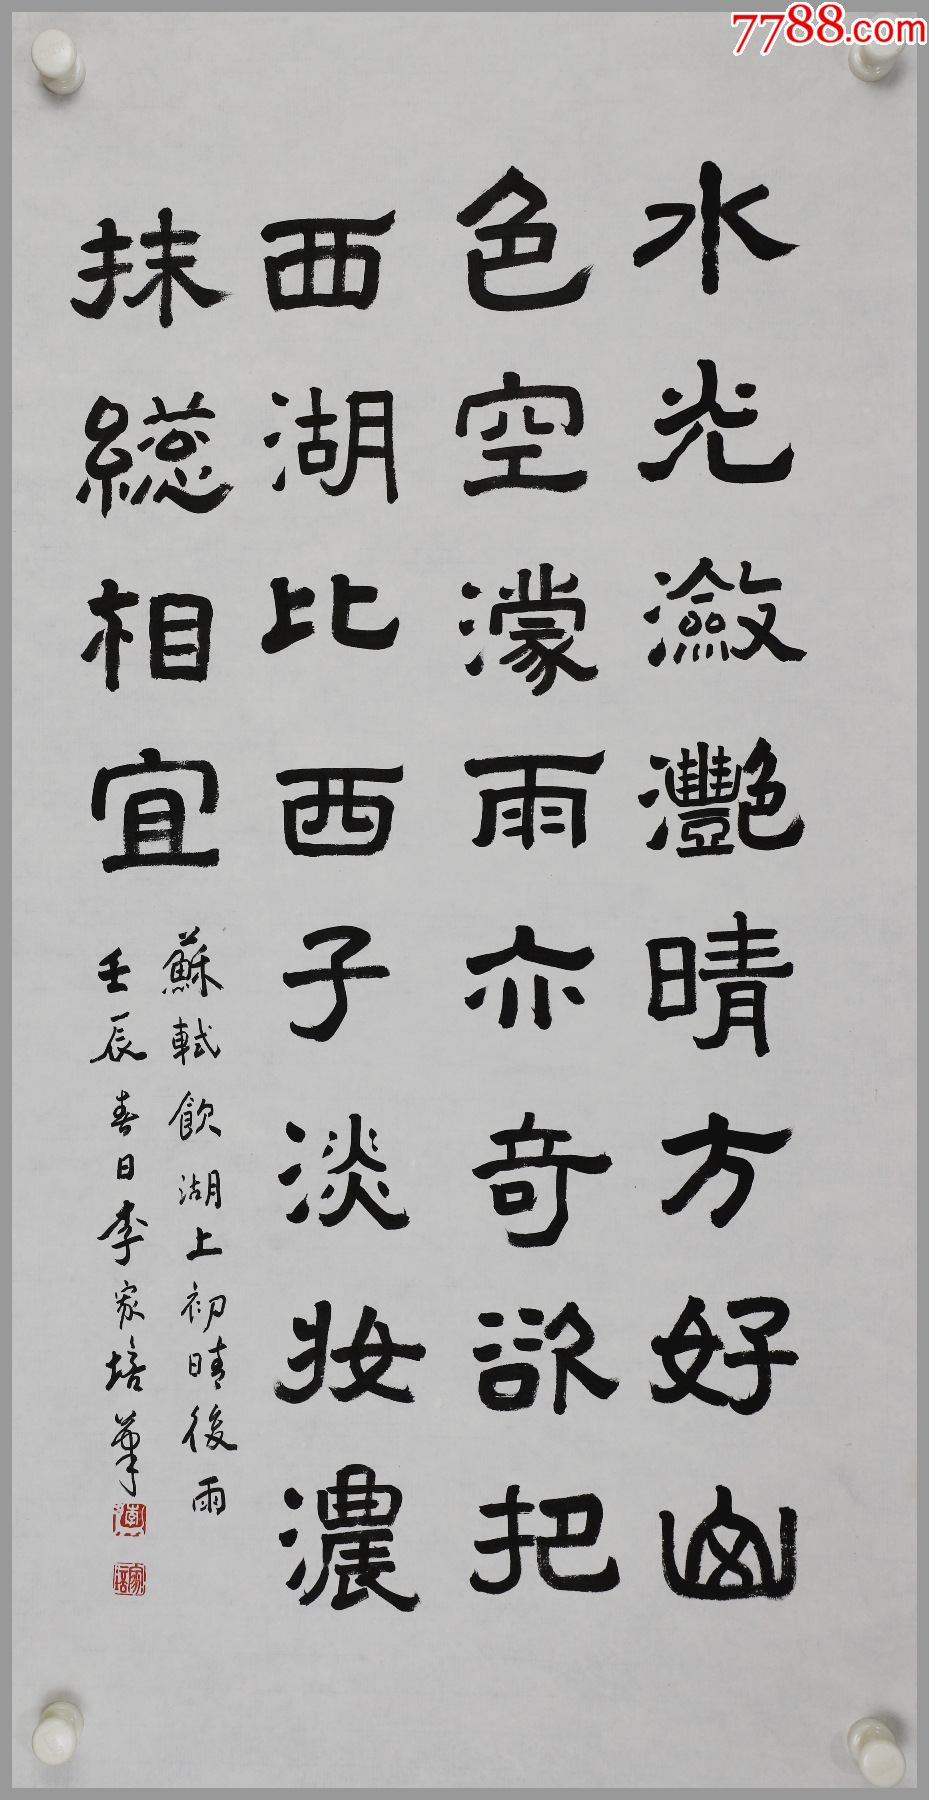 7788.com
水光瀲灩晴方好山
色空濛雨亦奇欲把
西湖比西子淡妝濃
抹總相宜
蘇軾飲湖上初晴後雨
壬辰春日李家培筆